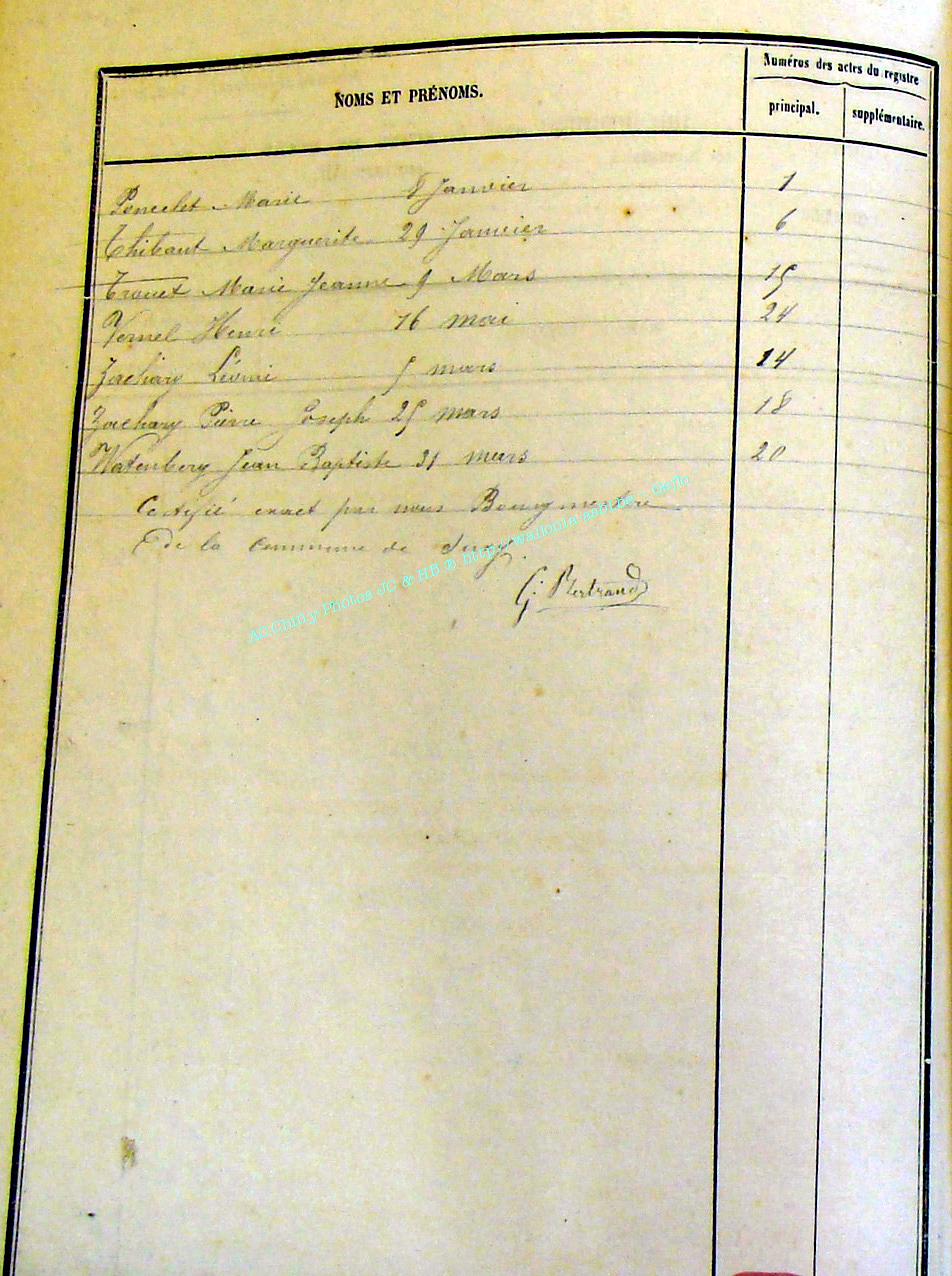 NOMS ET PRÉNOMS.
Numéros des actes du registre
principal. supplémentaire.
Poncelet Marie 8 Janvier 1
Thibaut Marguerite 29 Janvier 6
Trouet Marie Jeanne 9 Mars 15
Vernel Henri 16 mai 24
Zachary Léonie 5 mars 14
Zachary Pierre Joseph 25 mars 18
Watenberg Jean Baptiste 31 mars 20
Certifié exact par nous Bourgmestre
de la commune de
G. Bertrand
AG Chiny Photos JC & HB © http://wallonia-asbl.be